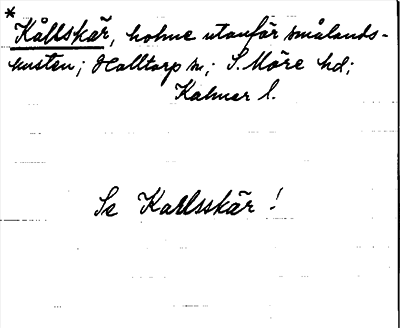 *
Kållskär, holme utanför smålands-
kusten; Halltorp sn; S. Möre hd;
Kalmar l.
Se Kallsskär!